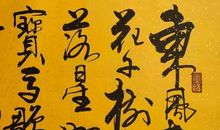 東風
花千樹
落星如
寶馬雕